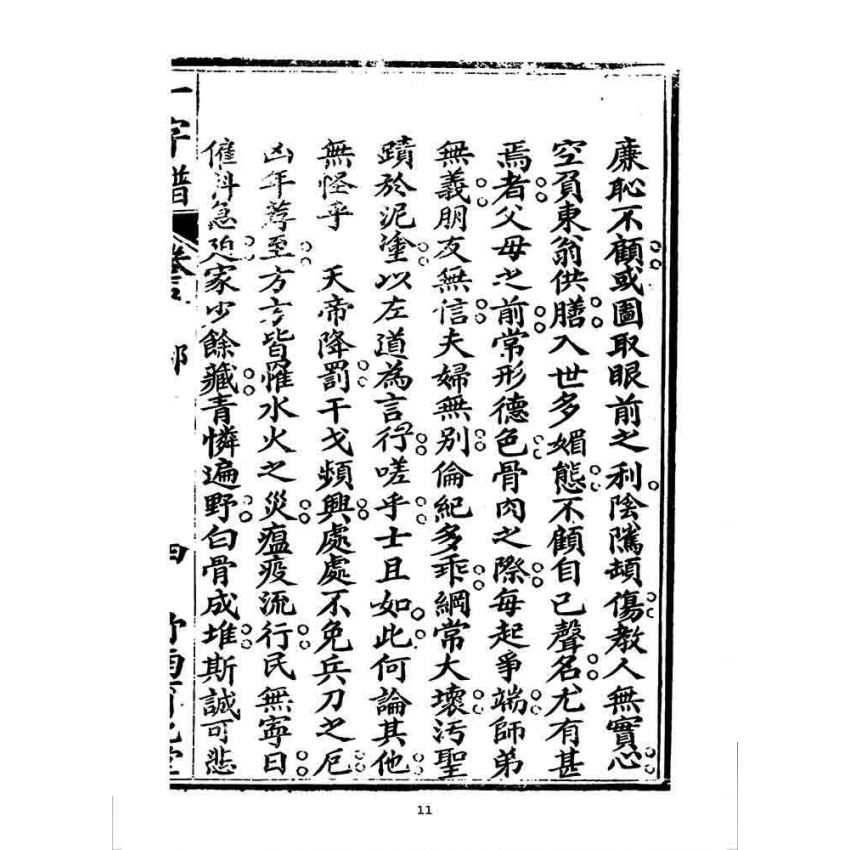 廉恥不顧或圖取眼前之利陰隲頓傷教人無實心
空負東翁供膳入世多媚態不顧自己聲名尤有甚
焉者父母之前常形德色骨肉之際每起爭端師弟
無義朋友無信夫婦無別倫紀多乖綱常大壞汚聖
蹟於泥塗以左道為言行嗟乎士且如此何論其他
無怪乎 天帝降罰干戈頻興處處不免兵刀之厄
凶年荐至方方皆罹水火之災瘟疫流行民無寧日
催科急廹家少餘藏青憐遍野白骨成堆斯誠可悲
一字譜 卷言 四
11